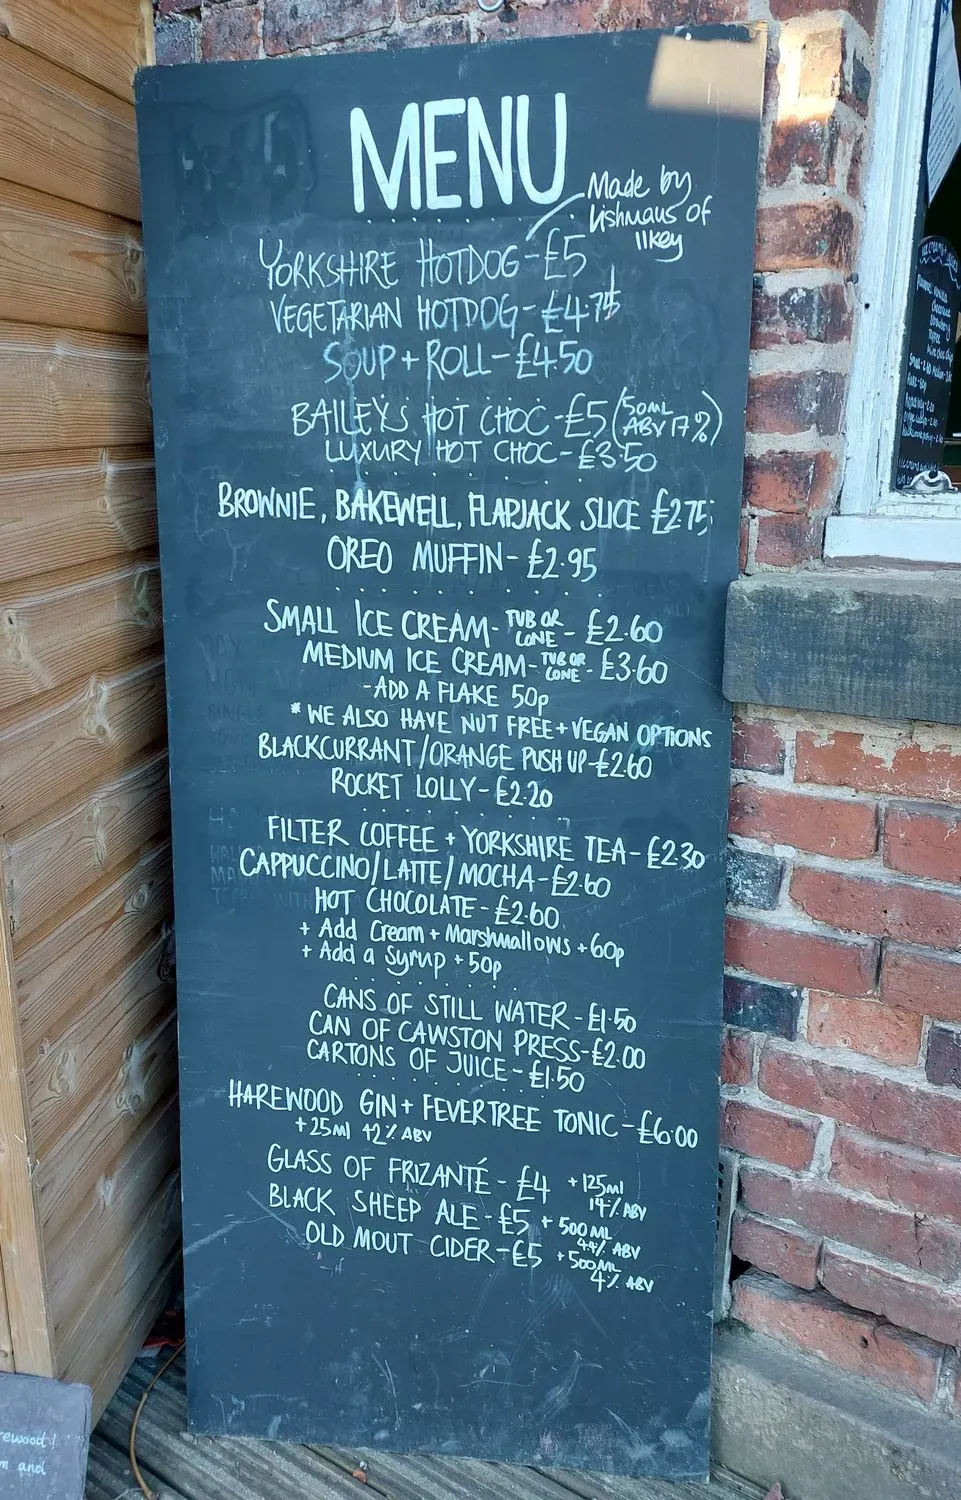 MENU
Made by
Lishmans of
Ilkey
YORKSHIRE HOTDOG - £5
VEGETARIAN HOTDOG - £4.75
SOUP + ROLL - £4.50
BAILEYS HOT CHOC - £5 (50ML
ABV 17%)
LUXURY HOT CHOC - £3.50
BROWNIE, BAKEWELL, FLAPJACK SLICE £2.75
OREO MUFFIN - £2.95
SMALL ICE CREAM - TUB OR CONE - £2.60
MEDIUM ICE CREAM - TUB OR CONE - £3.60
- ADD A FLAKE 50p
* WE ALSO HAVE NUT FREE + VEGAN OPTIONS
BLACKCURRANT/ORANGE PUSH UP - £2.60
ROCKET LOLLY - £2.20
FILTER COFFEE + YORKSHIRE TEA - £2.30
CAPPUCCINO/LATTE/MOCHA - £2.60
HOT CHOCOLATE - £2.60
+ Add Cream + Marshmallows + 60p
+ Add a Syrup + 50p
CANS OF STILL WATER - £1.50
CAN OF CAWSTON PRESS - £2.00
CARTONS OF JUICE - £1.50
HAREWOOD GIN + FEVERTREE TONIC - £6.00
+ 25ml 42% ABV
GLASS OF FRIZANTÉ - £4 + 125ml
14% ABV
BLACK SHEEP ALE - £5 + 500ML
4.4% ABV
OLD MOUT CIDER - £5 + 500ML
4% ABV
rewood!
m and